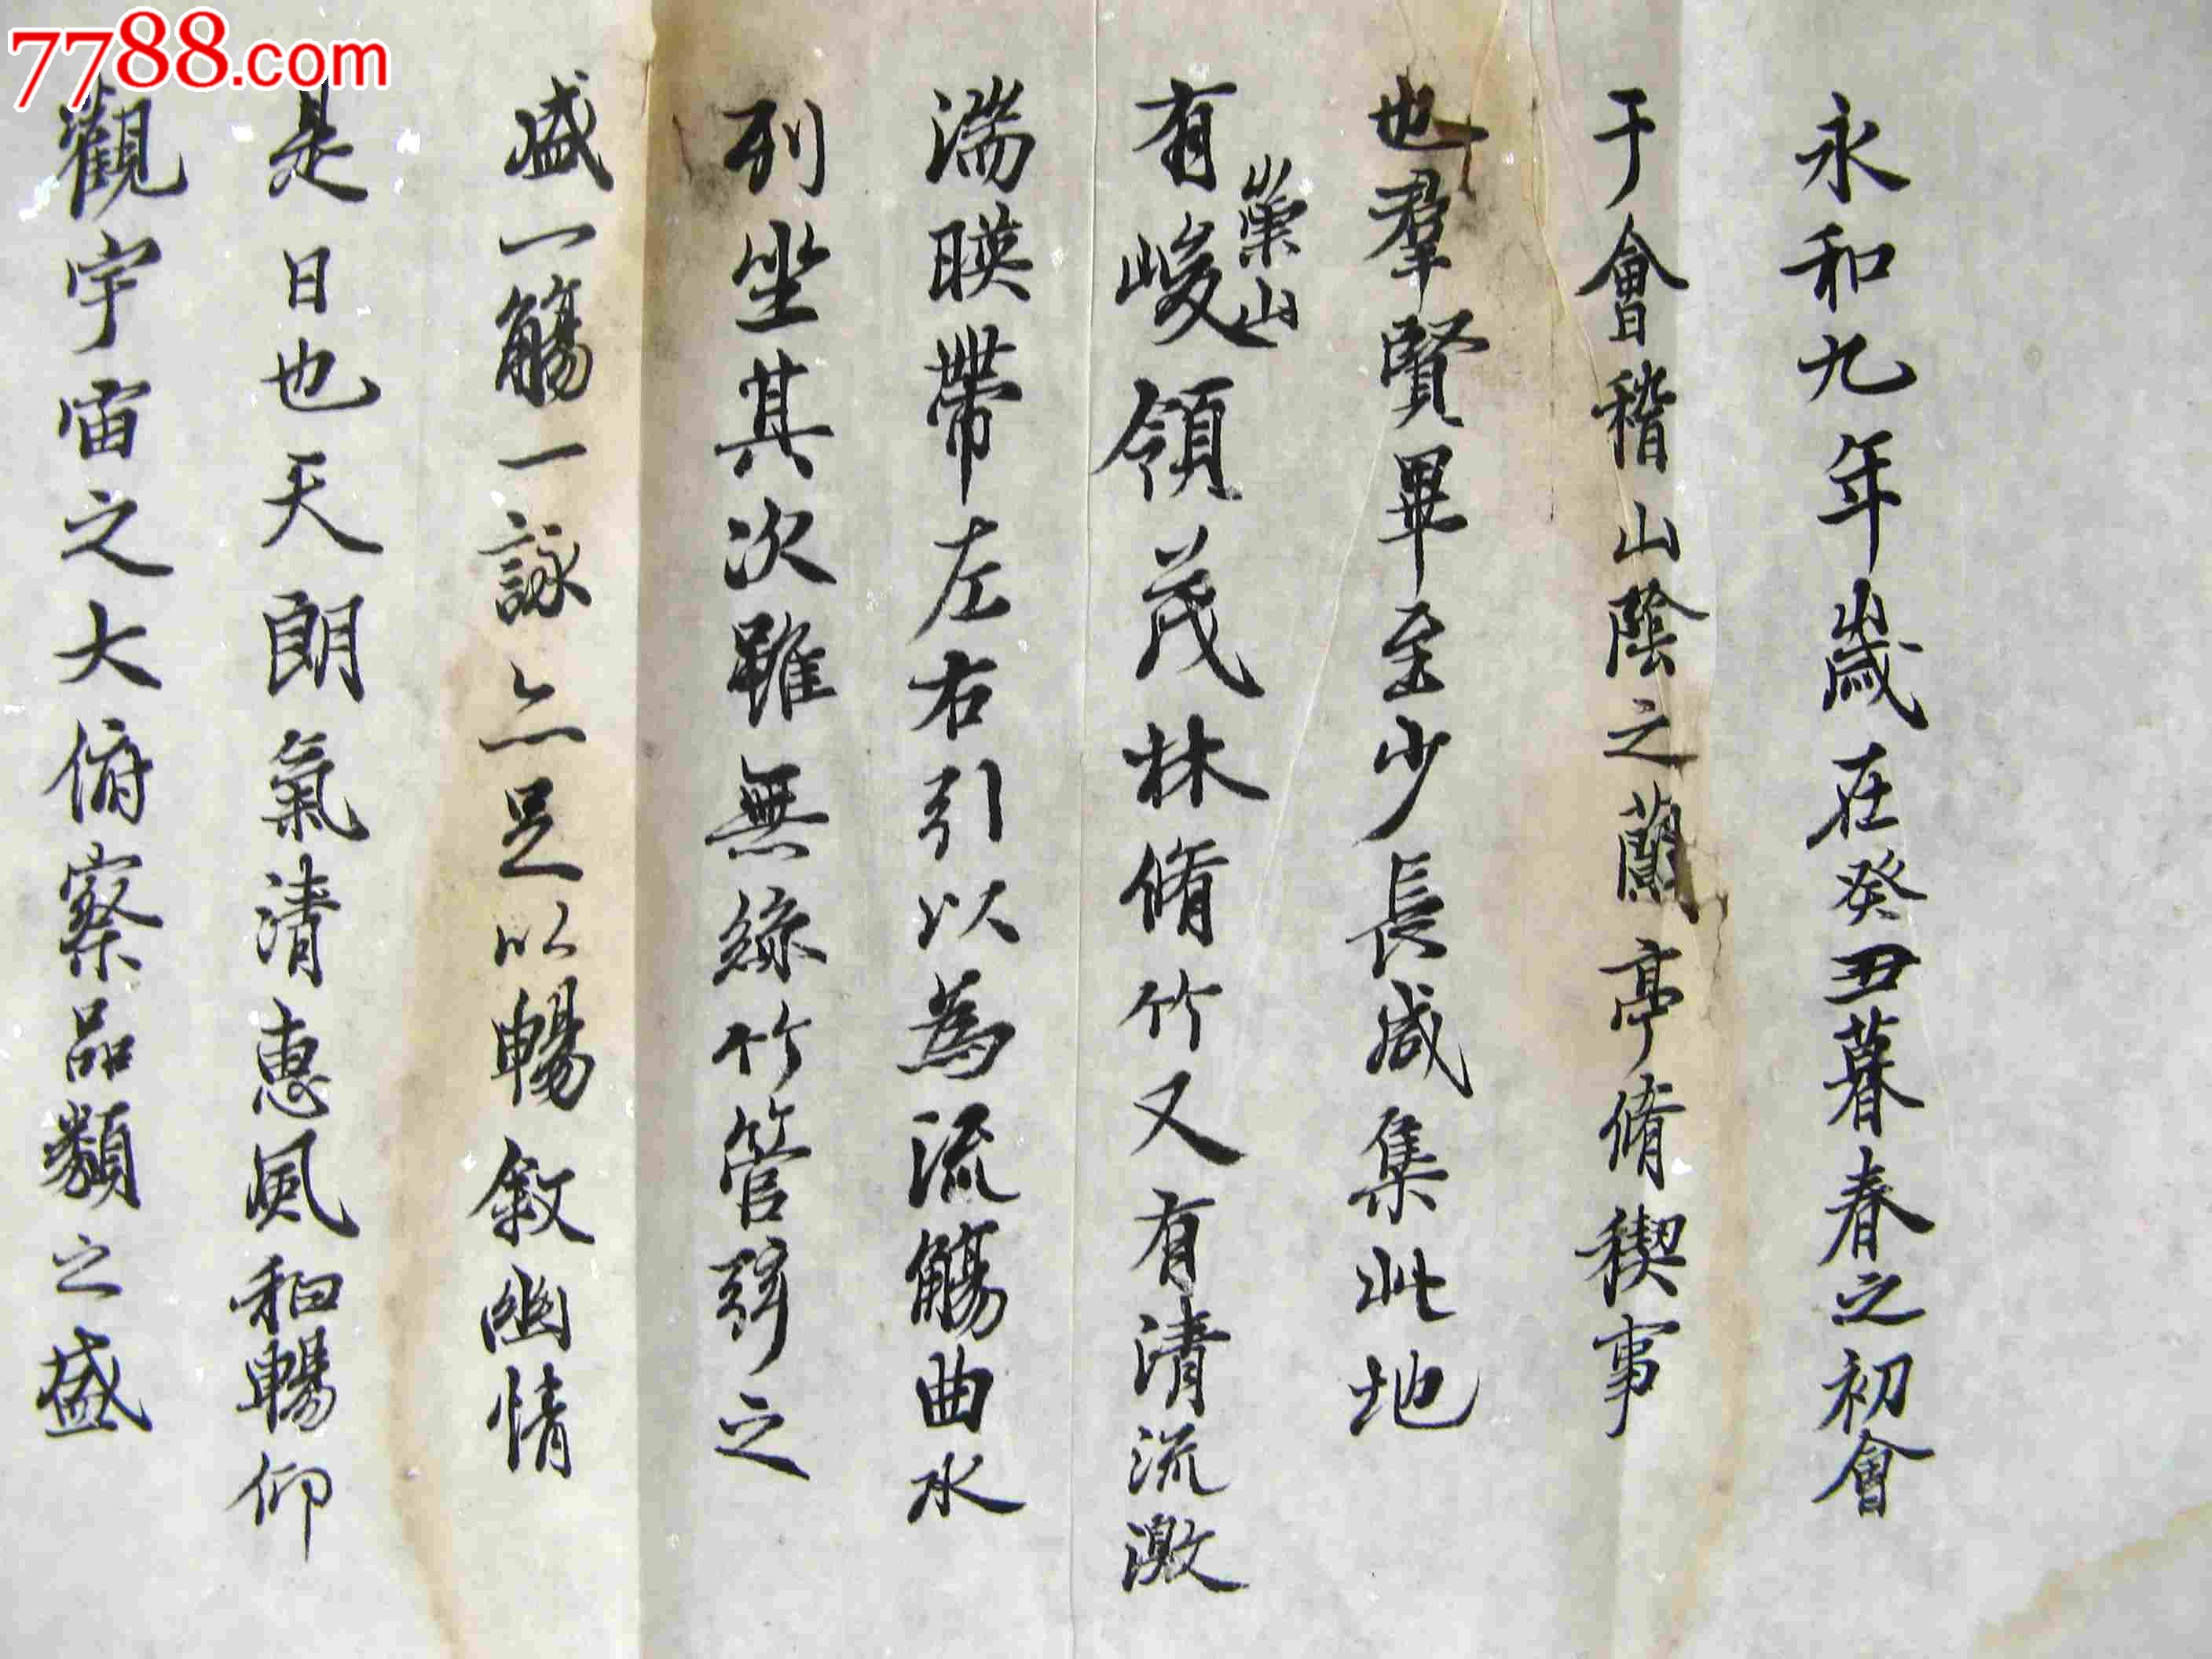 7788.com
永和九年歲在癸丑暮春之初會
于會稽山陰之蘭亭脩稧事
也羣賢畢至少長咸集此地
崇山
有峻領茂林脩竹又有清流激
湍暎帶左右引以為流觴曲水
列坐其次雖無絲竹管弦之
盛一觴一詠亦足以暢敘幽情
是日也天朗氣清惠風和暢仰
觀宇宙之大俯察品類之盛